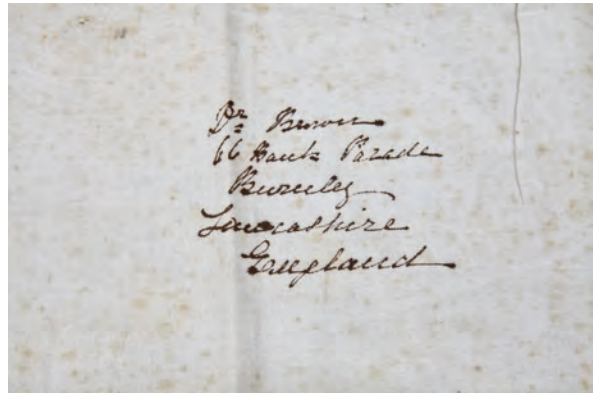 Dr Brown
66 Bank Parade
Burnley
Lancashire
England